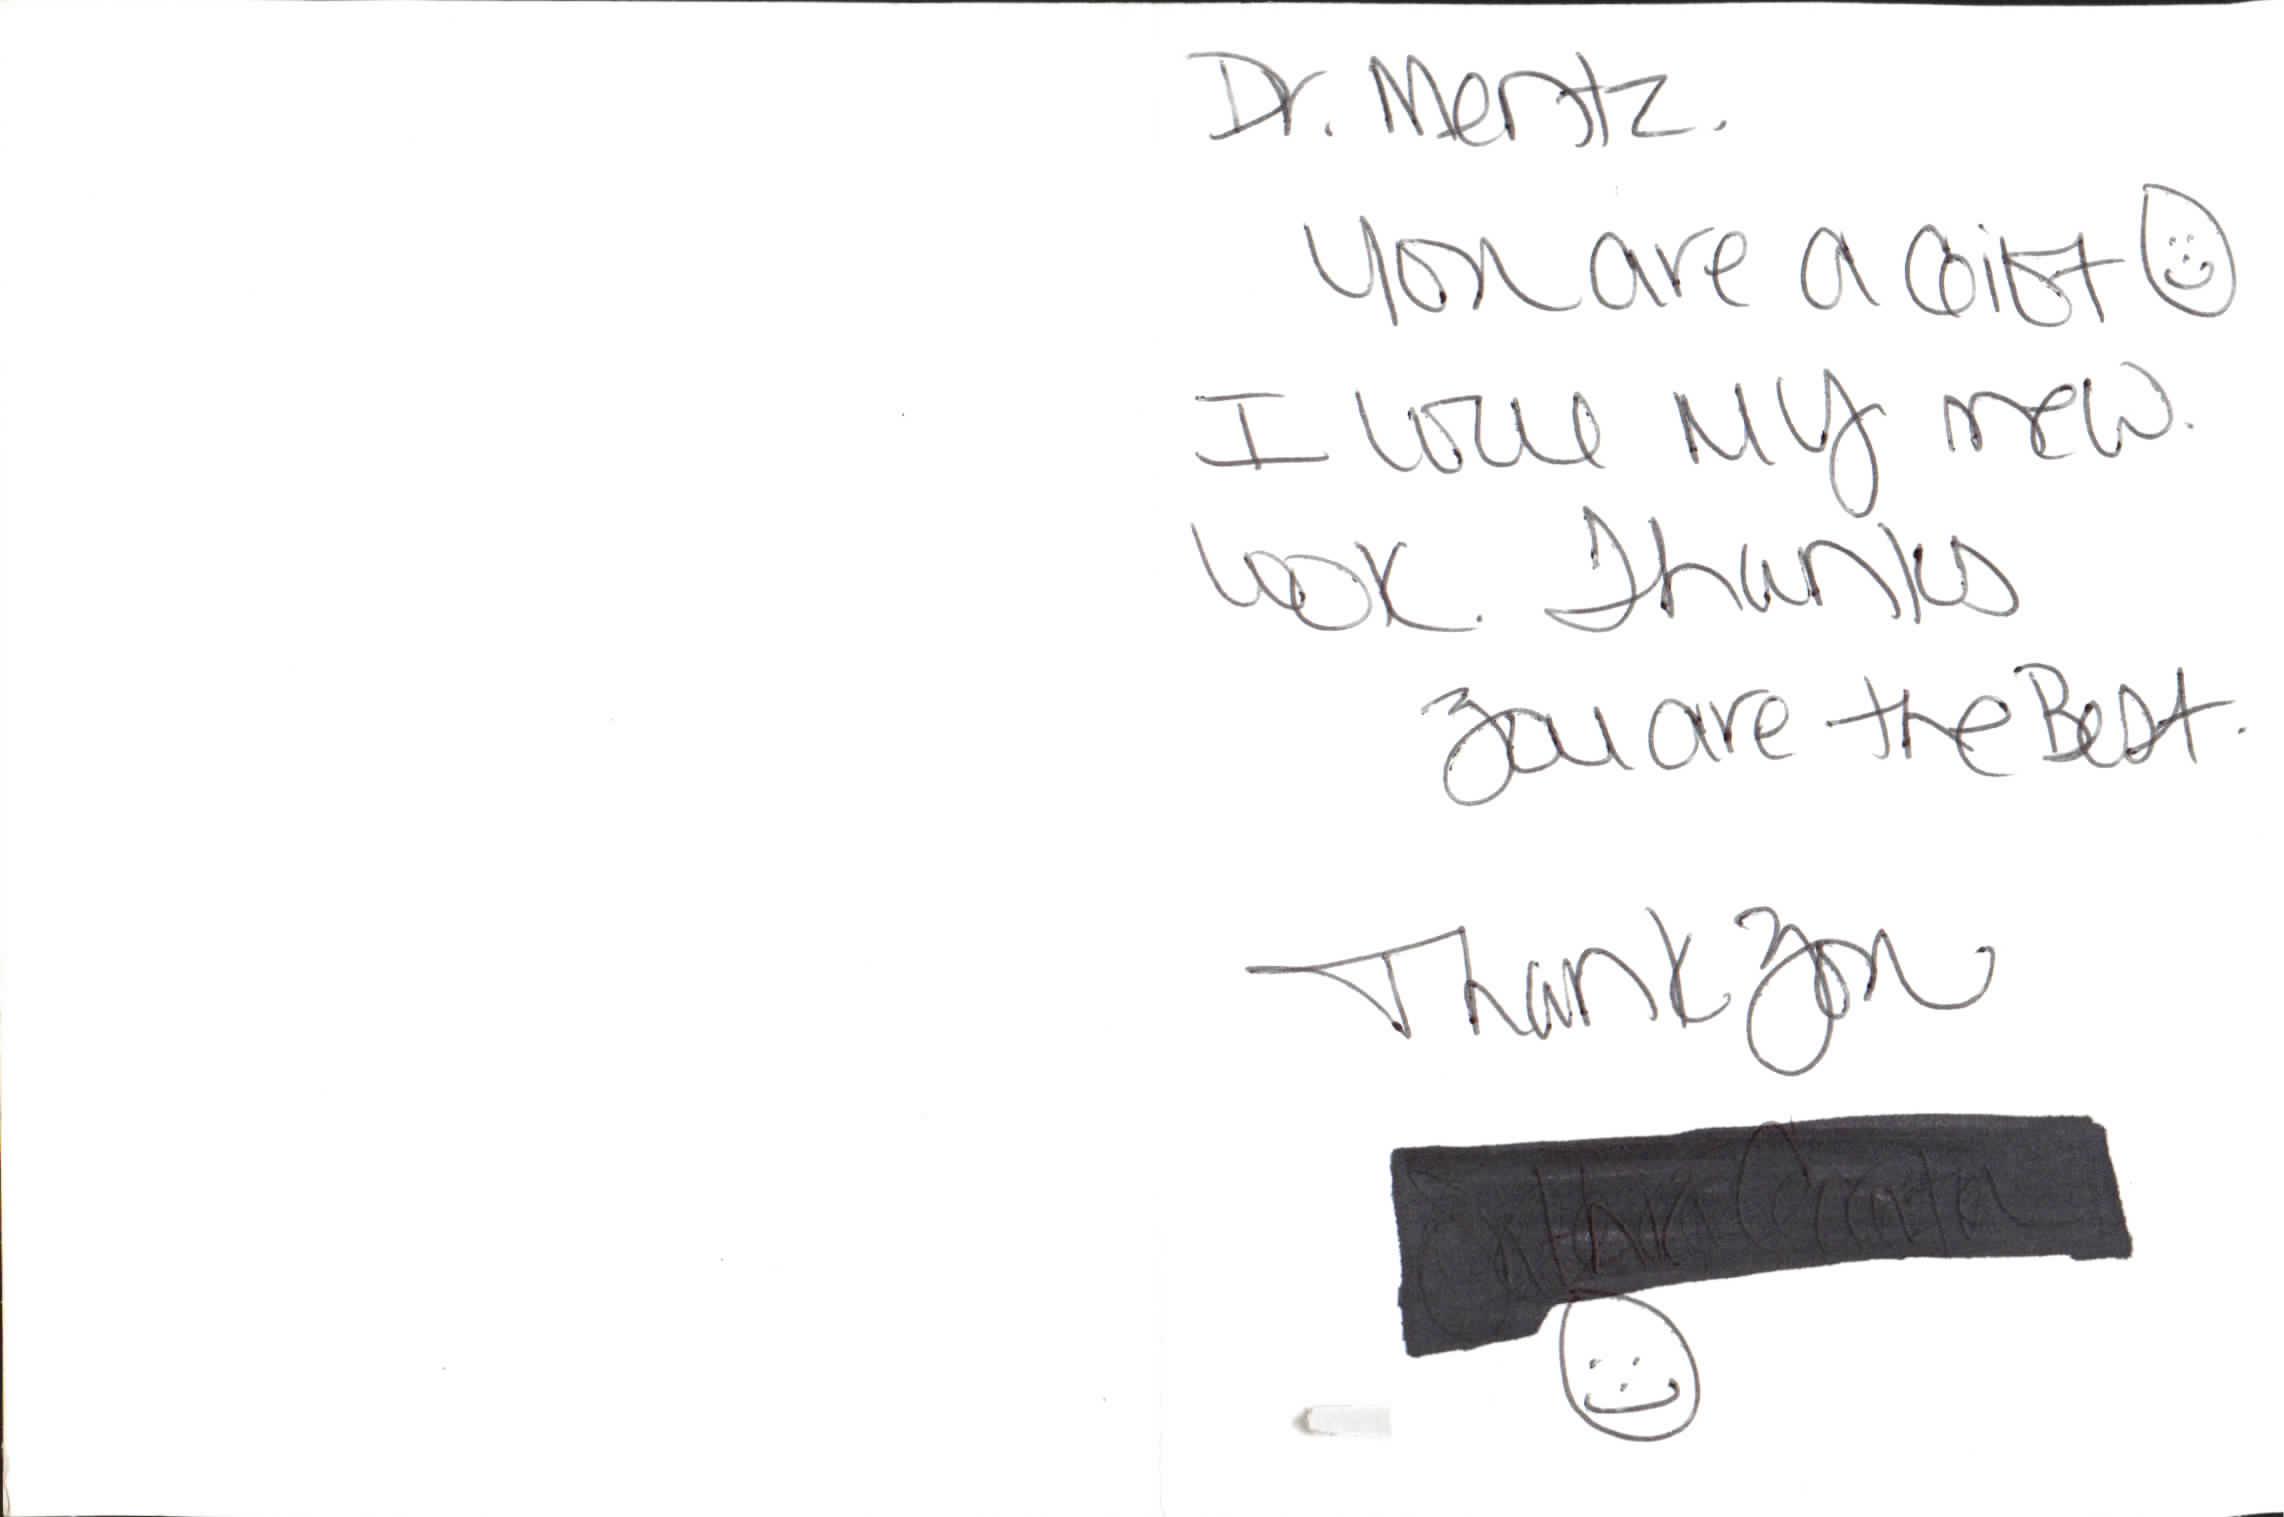 Dr. Mentz.
You are a Gift
I love My new.
look. Thanks
You are the Best.
Thank you